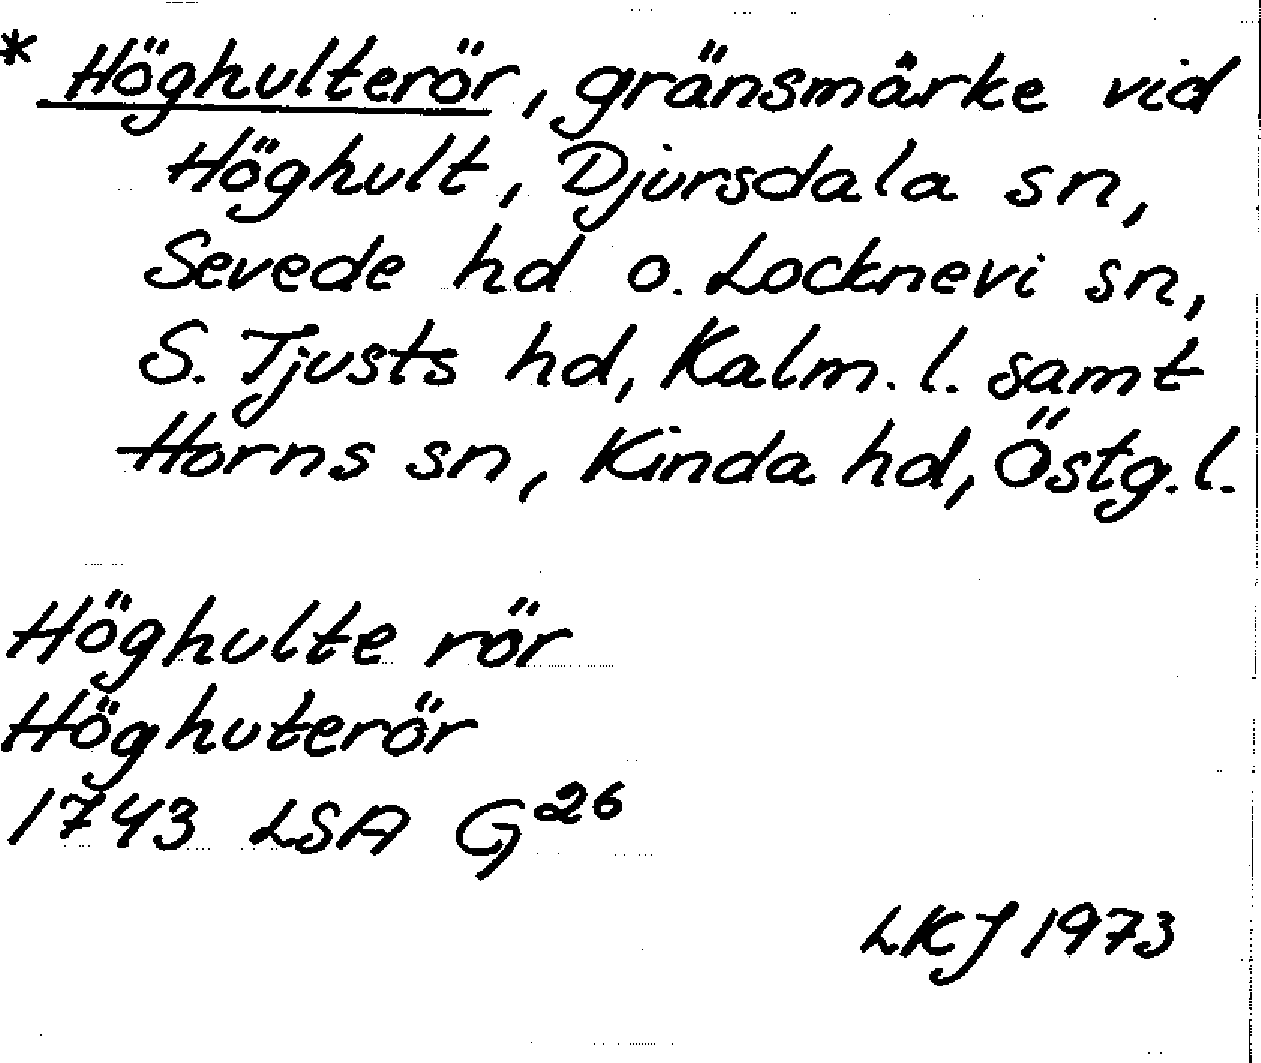 * Höghulterör, gränsmärke vid
Höghult, Djursdala sn,
Sevede hd o. Locknevi sn,
S. Tjusts hd, Kalm. l. samt
Horns sn, Kinda hd, Östg. l.
Höghulte rör
Höghuterör
1743 LSA G 26
LKJ 1973